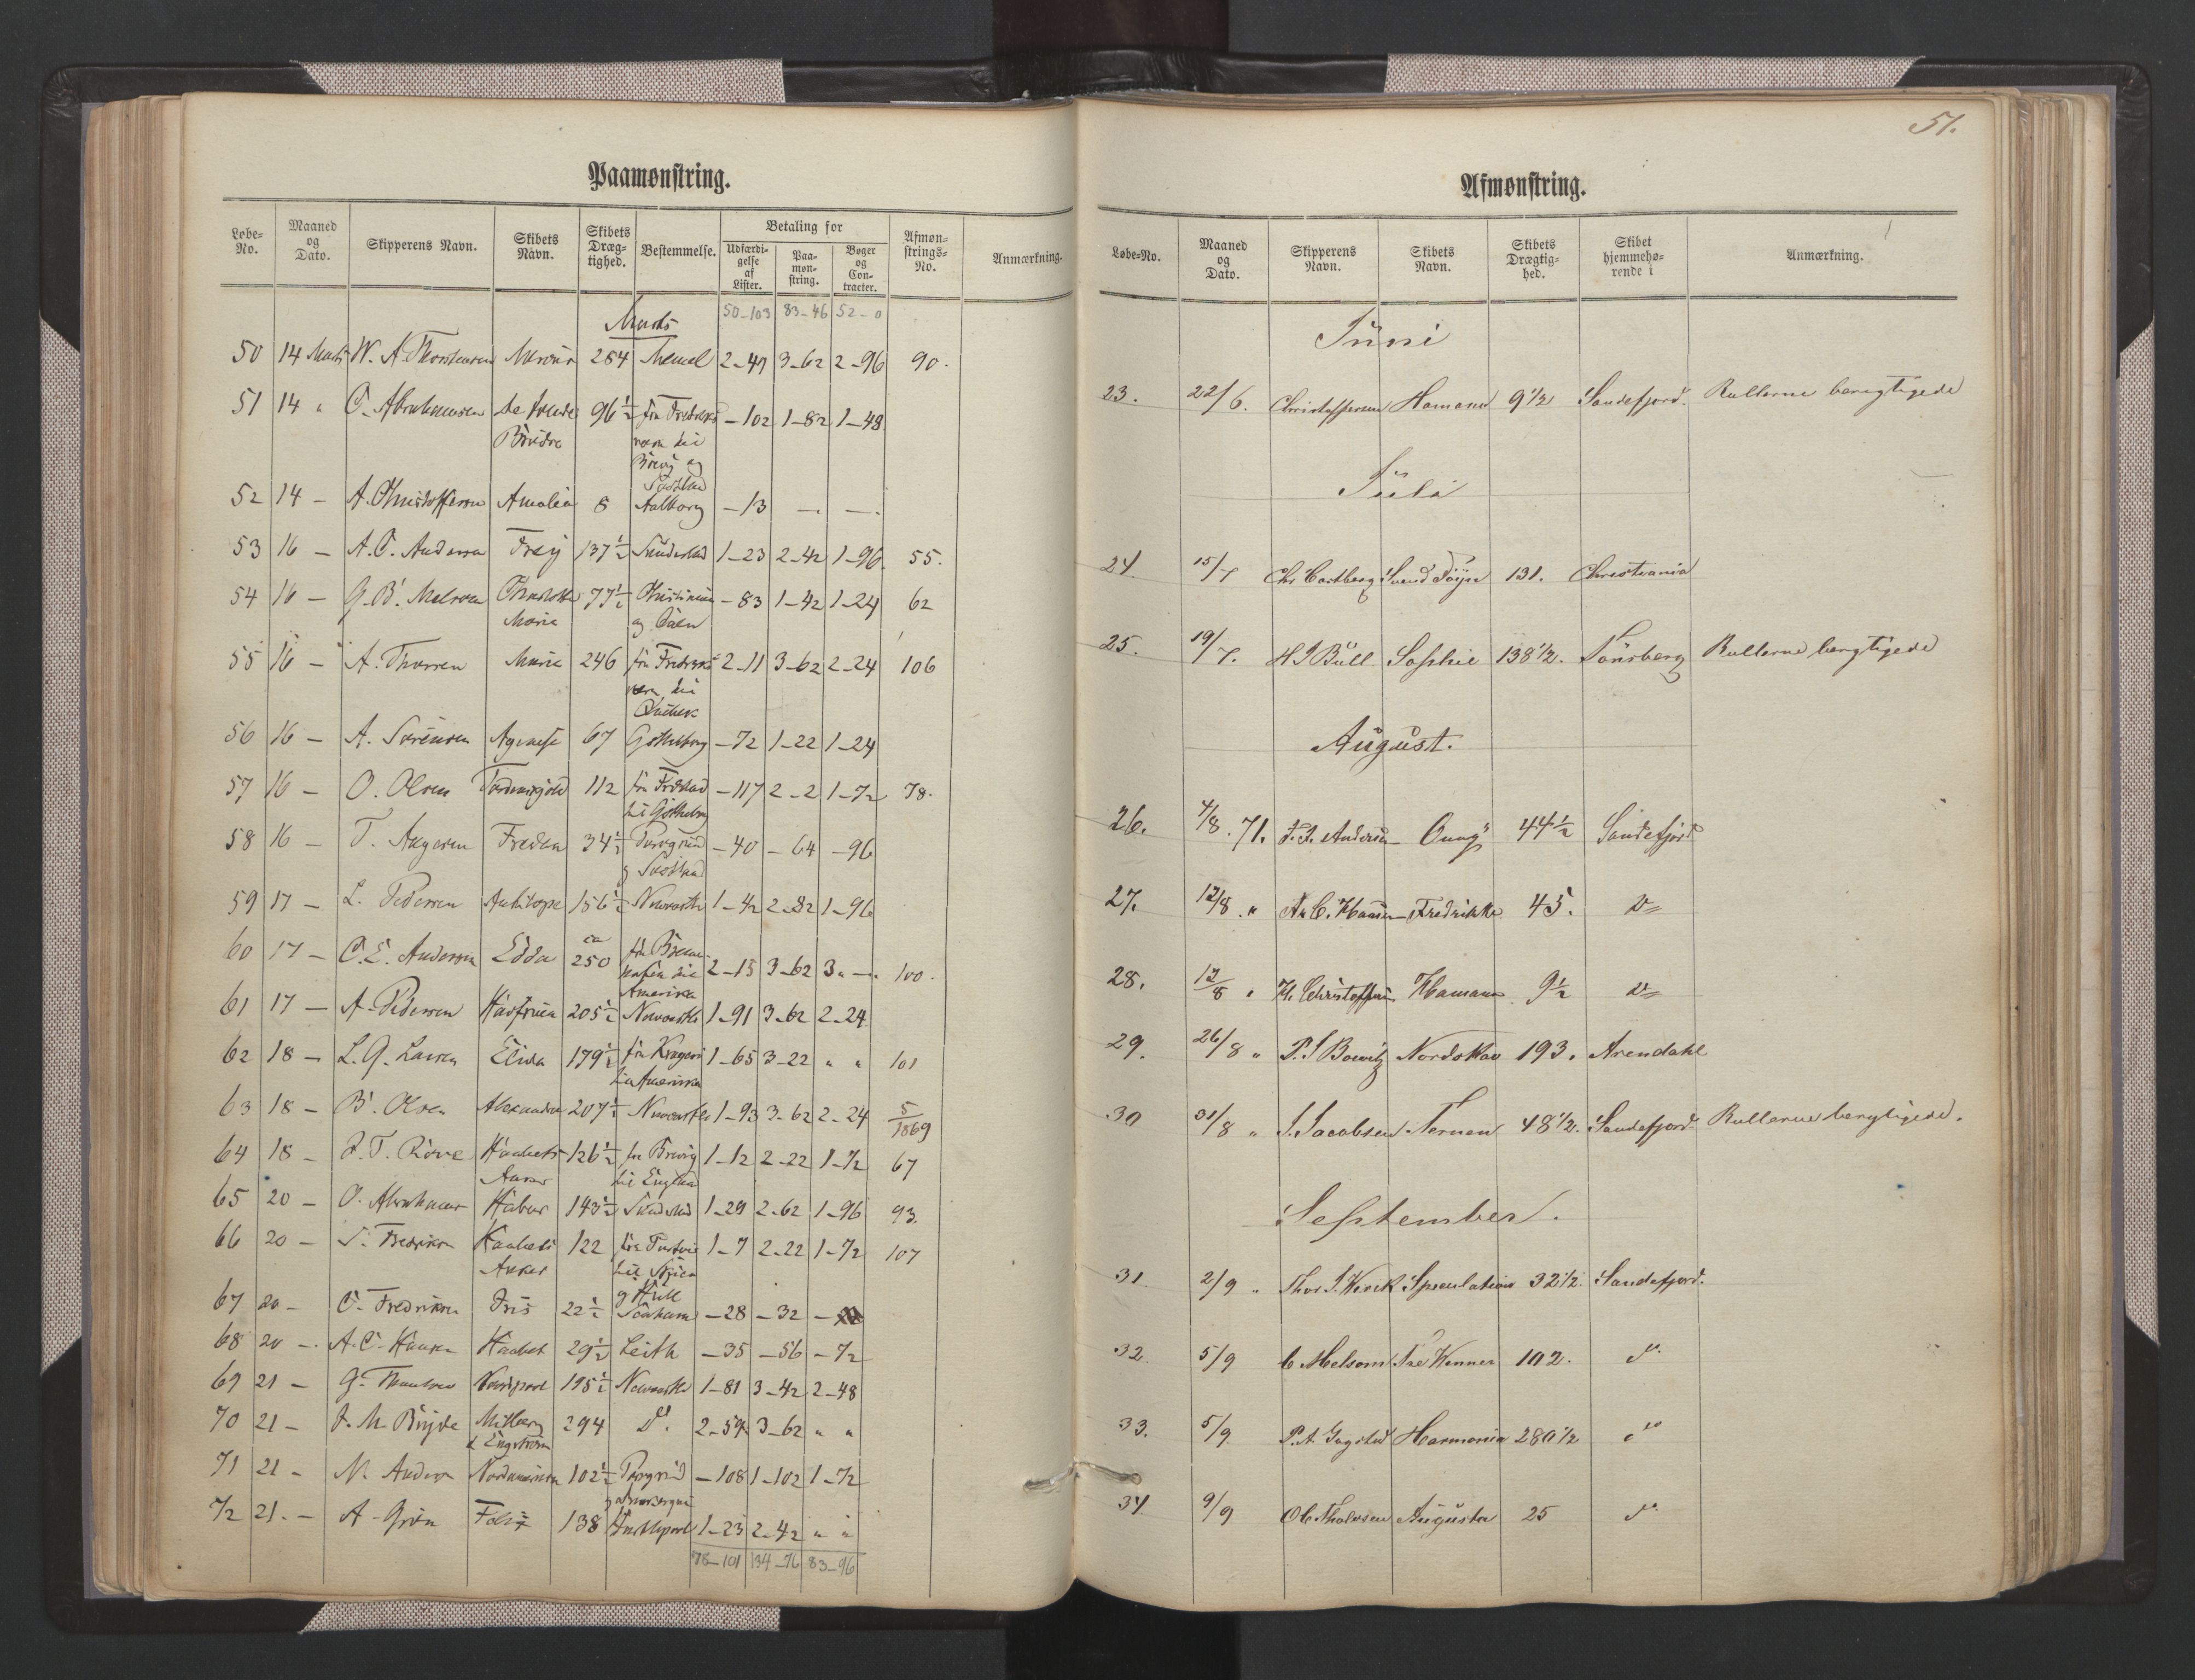 Paamønstring.
Løbe-No. Maaned og Dato. Skipperens Navn. Skibets Navn. Skibets Drægtighed. Bestemmelse. Betaling for Afmønstrings-No. Anmærkning.
Udfærdigelse af Lister. Paamønstring. Bøger og Contracter.
Marts 50-103 83-46 52-0
50 14 Marts W. A. Thorstensen Mercur 284 Memel 2-49 3-62 2-96 90.
51 14 " C. Abrahamsen De frende 96½ fra Fredriks -102 1-82 1-48
Brödre værn til
Brevig og
52 14 - A. Christoffersen Amalia 8 Aalborg -13 - -
53 16 - A. C. Andersen Freij 137½ Sunderland 1-23 2-42 1-96 55.
54 16 - G. B. Melsom Charlotte 77½ Christiania -83 1-42 1-24 62
Maria og
55 16 - A. Thorsen Maria 246 fra Fredriks 2-11 3-62 2-24 106
værn til
Quebek
56 16 - A. Sørensen 67 Gøtheborg -72 1-22 1-24
57 16 - O. Olsen Tordenskjold 112 fra Fredstad -117 2-2 1-72 78.
til Gøtheborg
58 16 - T. Aagesen Freden 34½ Porsgrund -40 -64 -96
59 17 - L. Pedersen Antilope 156½ Newcastle 1-42 2-82 1-96
60 17 - C. E. Anderson Edda ca 250 fra 2-15 3-62 3 " - 100.
til
Amerika
61 17 - A. Pedersen Havfruen 205½ Newcastle 1-91 3-62 2-24
62 18 - L. G. Larsen Elida 179½ fra Kragerö 1-65 3-22 " " 101
til Amerika
63 18 - B. Olsen Alexandra 207½ Newcastle 1-93 3-62 2-24 5/1869
64 18 - Haabets 126½ fra Brevig 1-12 2-22 1-72 67
Anker til England
65 20 - O. Abrahamsen Habor 143½ Sunderland 1-29 2-62 1-96 93.
66 20 - S. Fredriksen Haabets 122 fra 1-7 2-22 1-72 107
Anker til
g Hull
67 20 - C. Fredriksen Iris 22½ -28 -32 -
68 20 - A. C. Hansen Haabet 29½ Leith -35 -56 -72
69 21 - G. Nordpol 195½ Newcastle 1-81 3-42 2-48
70 21 - J. M. Bryde 294 Do. 2-59 3-62 " "
& Engström
71 21 - N. Andersen Nordamerika 102½ Porsgrund -108 1-102 1-72
72 21. - A. Grön Felix 138 Hartlepool 1-23 2-42 " "
78-101 134-76 83-96
51.
Afmønstring.
Løbe-No. Maaned og Dato. Skipperens Navn. Skibets Navn. Skibets Drægtighed. Skibet hjemmehørende i Anmærkning.
Juni
23. 22/6. Christoffersen Hamann 9½ Sandefjord. Rullerne berigtigede
Juli
24. 15/7 Chr Castberg Svend Föyn 131. Christiania
25. 19/7. H J Bull Sophie 138½. Tönsberg Rullerne berigtigede
August.
26. 4/8. 71. Andersen 44½ Sandefjord
27. 12/8. " A. C. Hansen Fredrikke 45. Do
28. 12/8 " H. Christoffersen Hamann 9½ Do
29. 26/8 " Nordskov 193. Arendahl
30 31/8 " J. Jacobsen Ternen 48½. Sandefjord Rullerne berigtigede.
September.
31 2/9 " Thor Speculation 32½. Sandefjord.
32. 5/9 C Melsom Tre Venner 102. do.
33. 5/9 Harmonia 280½ do
34 9/9 Ole Augusta 25 do.